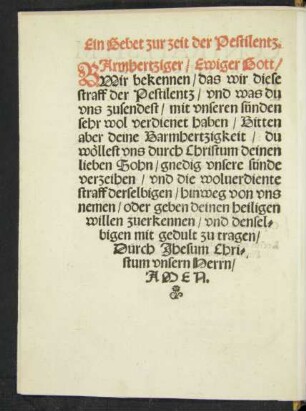 Ein Gebet zur zeit der Pestilentz.
BArmhertziger / Ewiger Gott /
Wir bekennen / das wir diese
straff der Pestilentz / vnd was du
vns zusendest / mit vnseren sünden
sehr wol verdienet haben / Bitten
aber deine Barmhertzigkeit / du
wöllest vns durch Christum deinen
lieben Sohn / gnedig vnsere sünde
verzeihen / vnd die woluerdiente
straff derselbigen / hinweg von vns
nemen / oder geben deinen heiligen
willen zuerkennen / vnd densel-
bigen mit gedult zu tragen /
Durch Jhesum Chri-
stum vnsern Herrn /
AMEN.